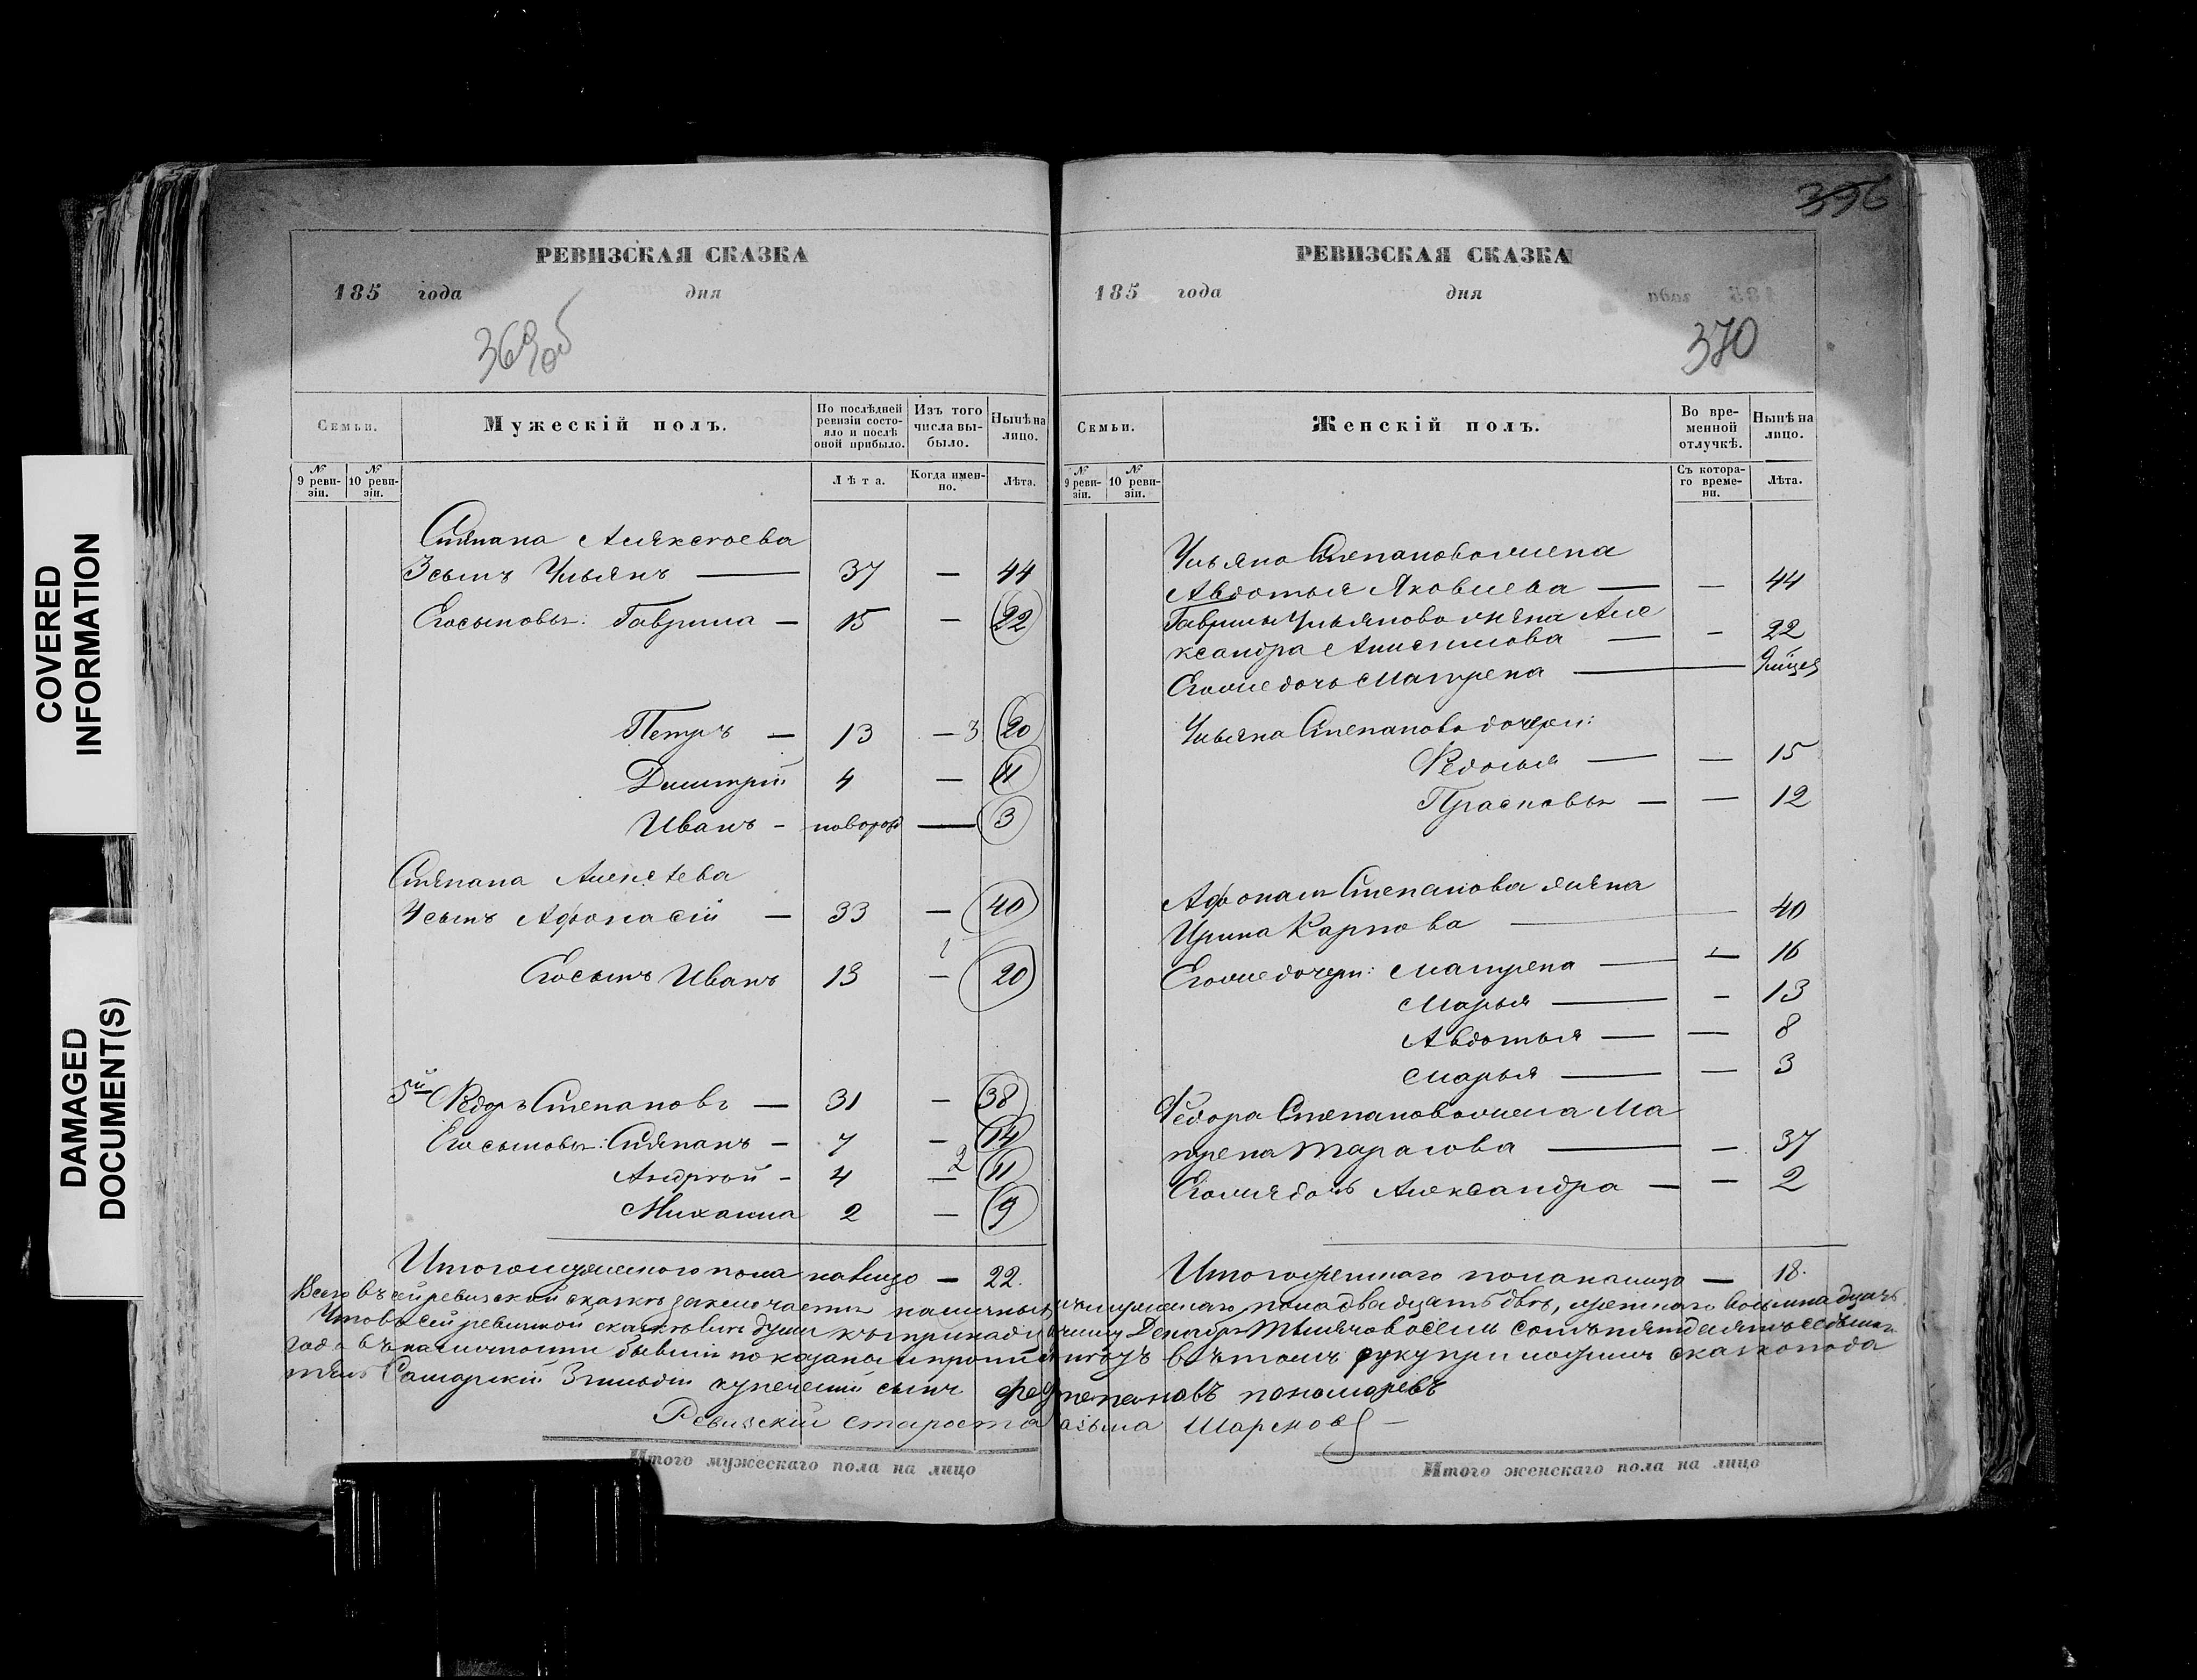 COVERED
INFORMATION
DAMAGED
DOCUMENT(S)
РЕВИЗСКАЯ СКАЗКА
185 года дня
369об
Семьи.
Мужескій полъ.
По послѣдней ревизіи состояло и послѣ оной прибыло.
Изъ того числа выбыло.
Нынѣ на лицо.
№ 9 ревизіи.
№ 10 ревизіи.
Лѣта.
Когда именно.
Лѣта.
Степана Алексѣева
3 сынъ Ульянъ — 37 — 44
Его сыновья: Гаврила — 15 — 22
Петръ — 13 — 3 20
Димитрій 4 — 11
Иванъ - новорожд — 3
Степана Алексѣева
4 сынъ Афонасій — 33 — 40
Его сынъ Иванъ 13 — 20
5й Ѳедоръ Степановъ — 31 — 38
Его сыновья: Степанъ — 7 — 14
Андрей - 4 — 2 11
Михаила 2 — 9
Итого мужескаго пола на лицо — 22.
396
РЕВИЗСКАЯ СКАЗКА
185 года дня
370
Семьи.
Женскій полъ.
Во временной отлучкѣ.
Нынѣ на лицо.
№ 9 ревизіи.
№ 10 ревизіи.
Съ котораго времени.
Лѣта.
Ульяна Степанова жена
Авдотья Яковлева — — 44
Гаврилы Ульянова жена Але
ксандра Анисимова — - 22
Его же дочь Матрена —
Ульяна Степанова дочери:
Ѳедосья — — 15
Прасковья — — 12
Афонасія Степанова жена
Ирина Карпова — 40
Его же дочери: Матрена — — 16
Марья — - 13
Авдотья — — 8
Марья — — 3
Ѳедора Степанова жена Ма
трена Тарасова — — 37
Его же дочь Александра — — 2
Итого женскаго пола на лицо — 18.
Всего въ сей ревизской сказкѣ заключается наличныхъ мужескаго пола двадцать двѣ, женскаго восемнадцать
Что въ сей ревизской сказкѣ всѣ души Декабря тысяча восемь сотъ пятьдесятъ седьмаго
года въ наличности бывшія показаны и прописныхъ нѣтъ въ томъ руку приложилъ сказкопода
тель Самарскій купеческій сынъ пономаревъ
Ревизскій староста
Итого мужескаго пола на лицо
Итого женскаго пола на лицо